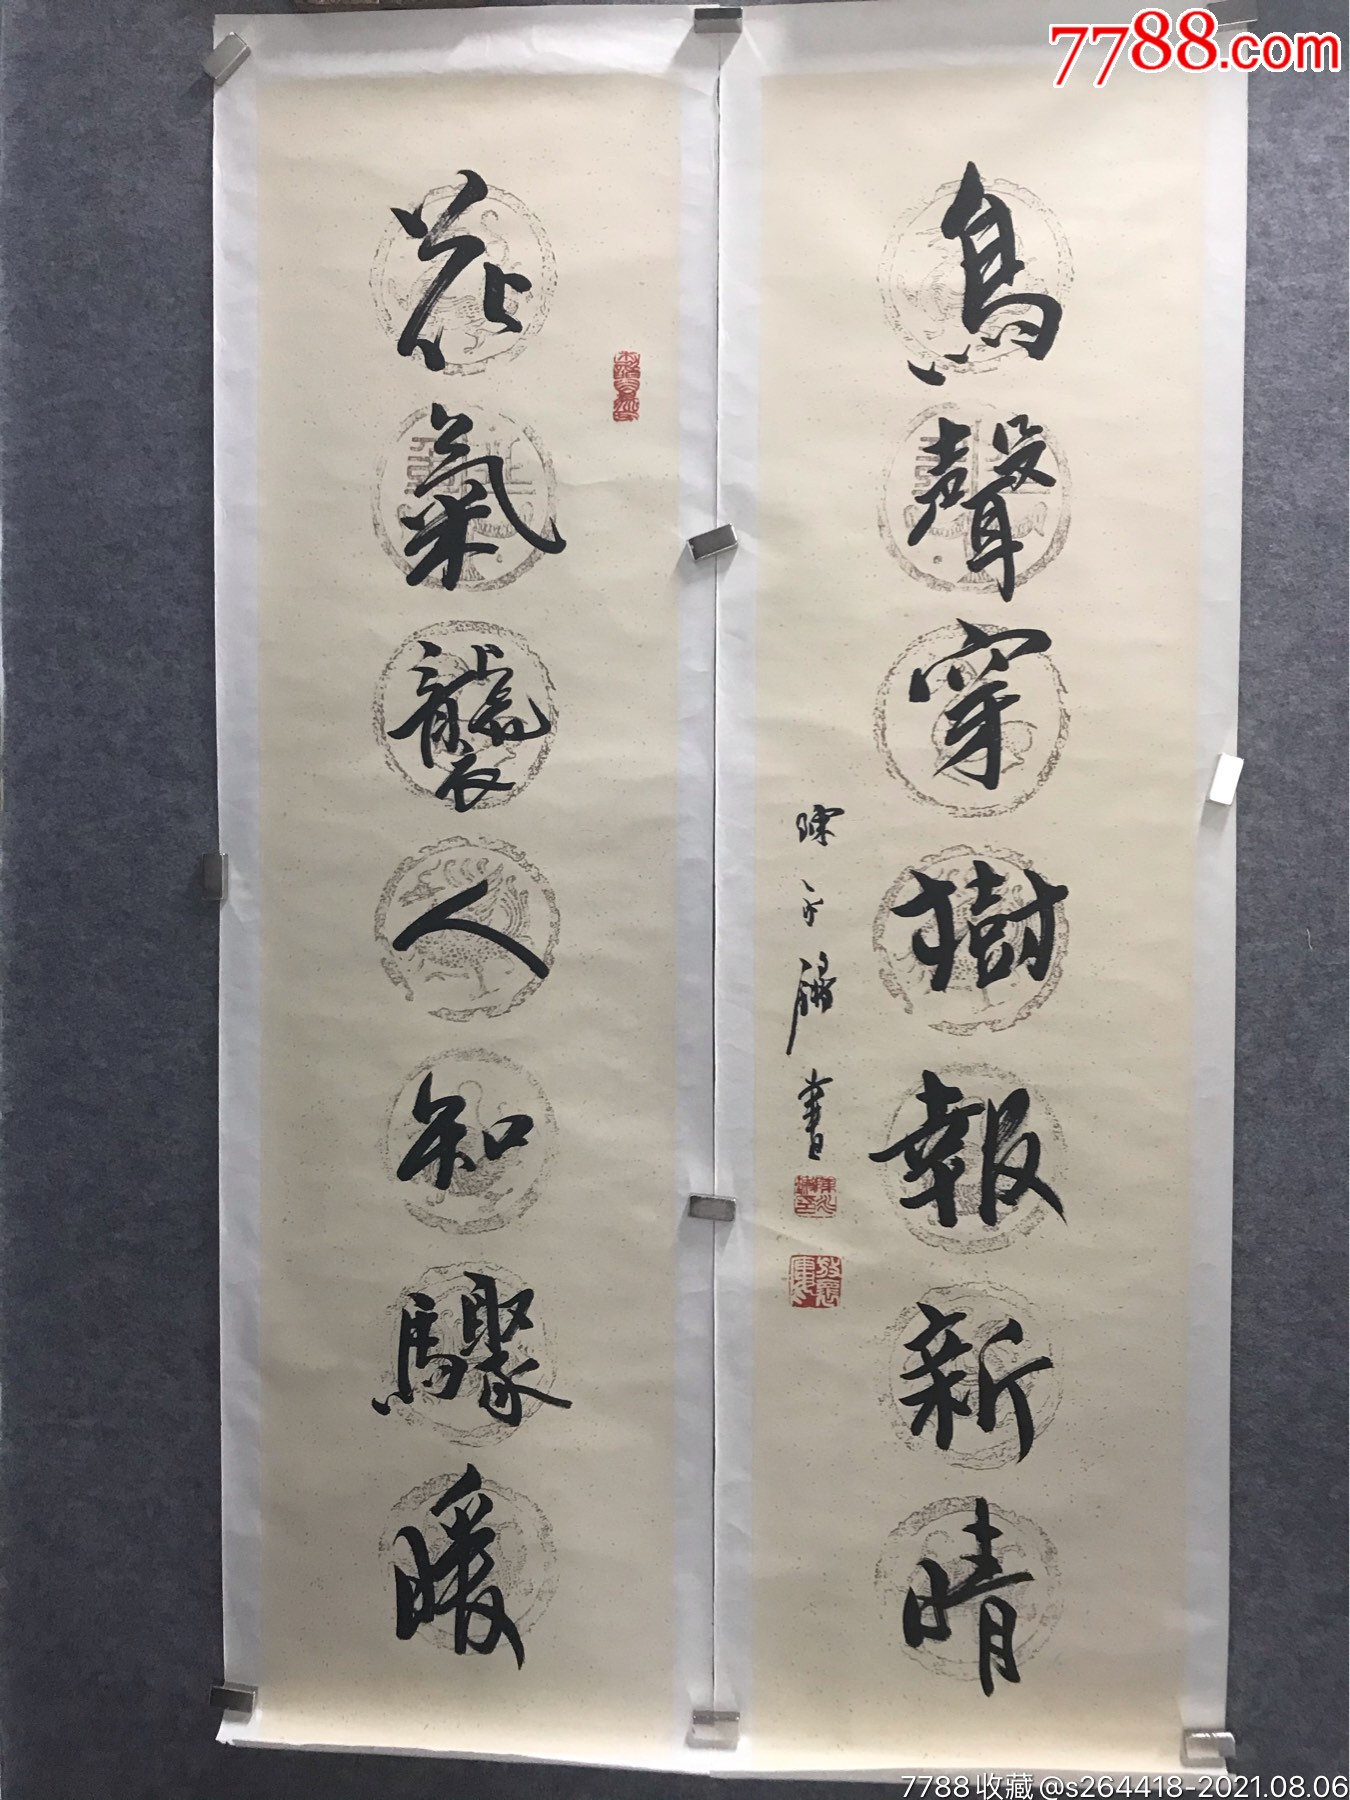 7788.com
鳥聲穿樹報新晴
花氣襲人知驟暖
陳永鏘書
7788收藏@s264418-2021.08.06